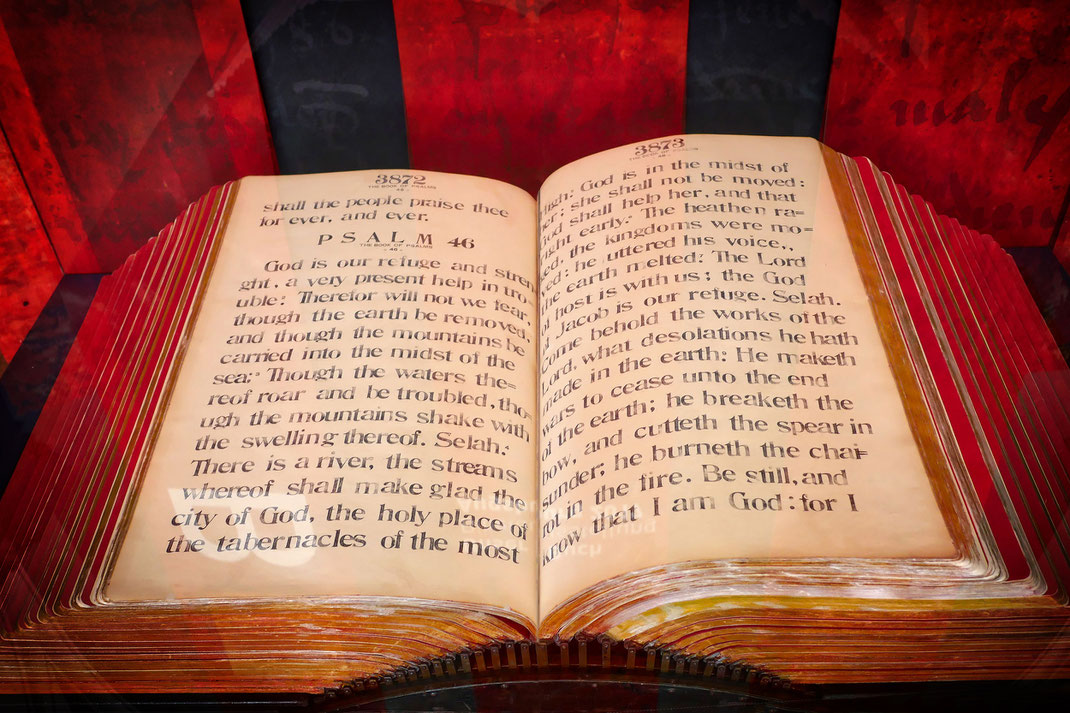 3872
THE BOOK OF PSALMS
- 46 -
shall the people praise thee
for ever, and ever.
PSALM 46
THE BOOK OF PSALMS
- 46 -
God is our refuge and stren
ght, a very present help in tro-
uble: Therefor will not we fear,
though the earth be removed,
and though the mountains be
carried into the midst of the
sea: Though the waters the=
reof roar and be troubled, tho
ugh the mountains shake with
the swelling thereof. Selah.
There is a river, the streams
whereof shall make glad the
city of God, the holy place of
the tabernacles of the most
3873
THE BOOK OF PSALMS
high: God is in the midst of
her; she shall not be moved:
God shall help her, and that
right early. The heathen ra=
ged, the kingdoms were mo=
ved: he uttered his voice,,
the earth melted: The Lord
of host is with us; the God
of Jacob is our refuge. Selah.
Come behold the works of the
Lord, what desolations he hath
made in the earth: He maketh
wars to cease unto the end
of the earth; he breaketh the
bow, and cutteth the spear in
sunder; he burneth the chai=
rot in the fire. Be still, and
know that I am God: for I